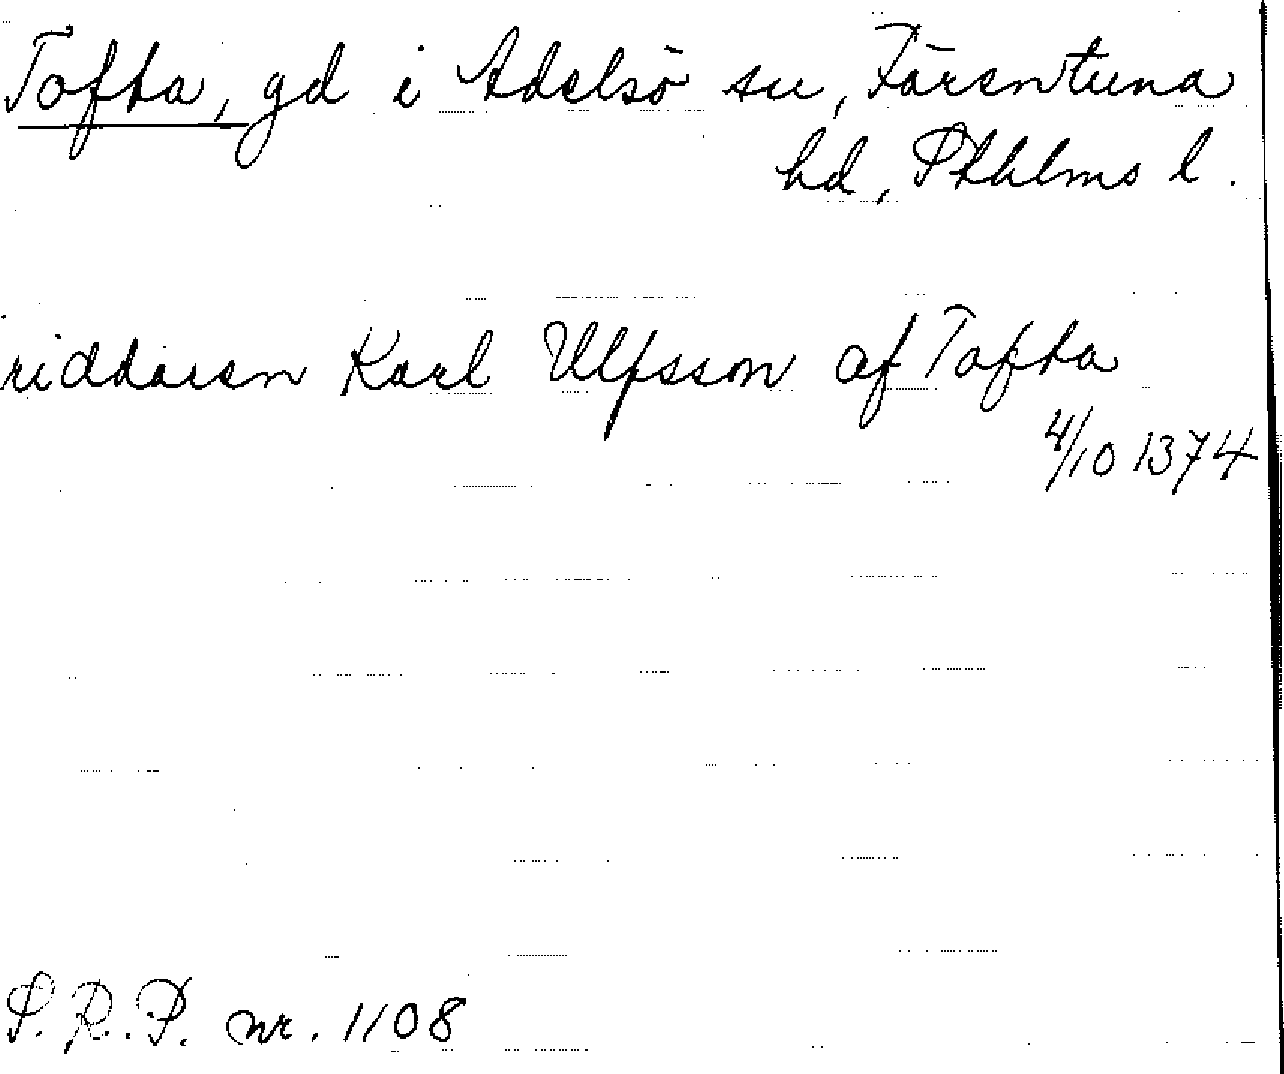 Tofta, gd i Adelsö sn, Färentuna
hd, Sthlms l.
riddaren Karl Ulfsson af Tofta
4/10 1374
S.R.P. nr. 1108